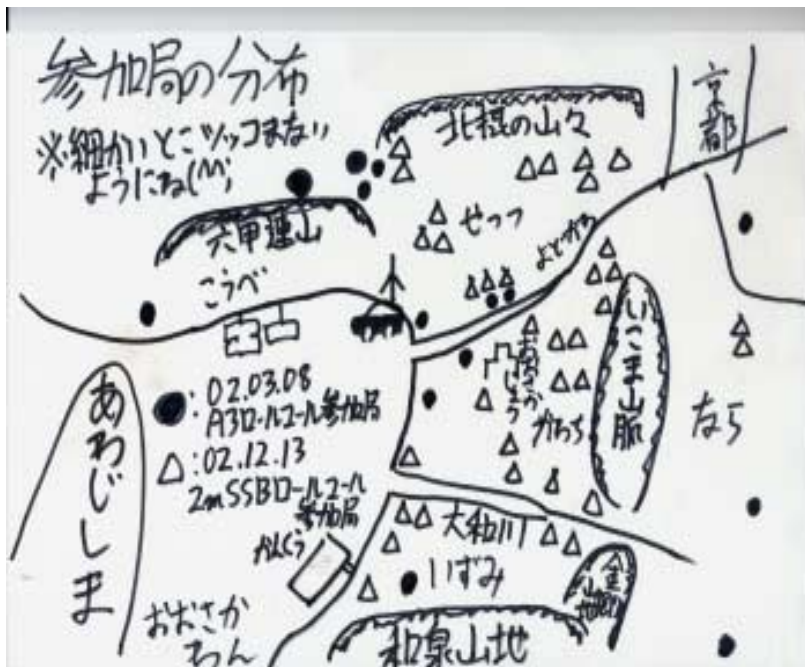 参加局の分布
※細かいとこツッコまない
ようにね(^^;
北摂の山々
京都
六甲連山
せっつ
よどがわ
こうべ
いこま山脈
おおさかじょう
かわち
なら
あわじしま
●:02.03.08
A3ロールコール参加局
△:02.12.13
2mSSBロールコール
参加局
かんくう
大和川
いずみ
おおさか
わん
和泉山地